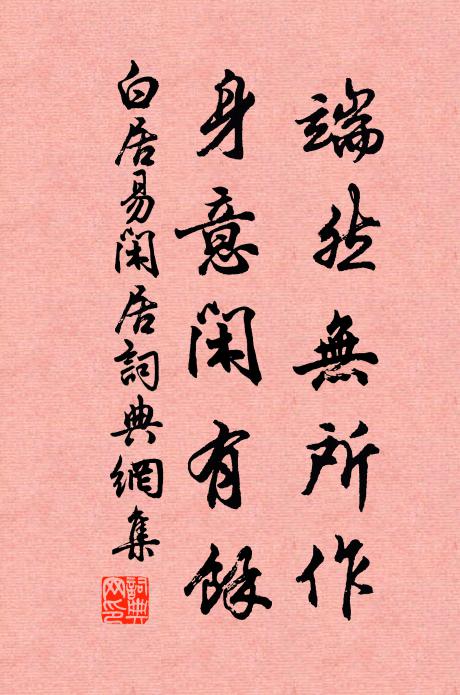 端然無所作
身意閑有餘
白居易閑居詞典網集
詞典網印